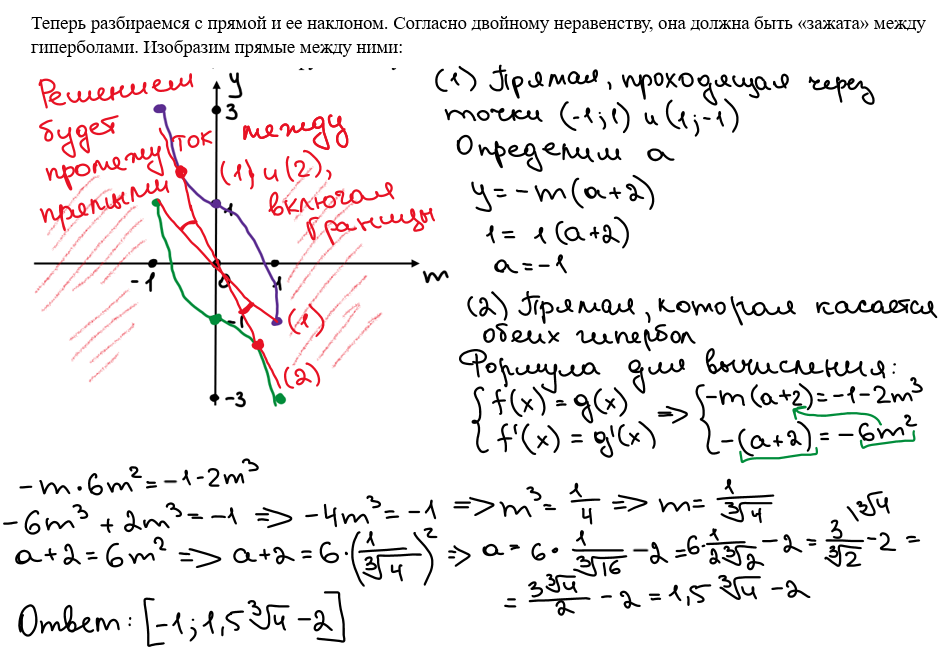 Теперь разбираемся с прямой и ее наклоном. Согласно двойному неравенству, она должна быть «зажата» между
гиперболами. Изобразим прямые между ними:
Решением
будет
промежуток между
(1) и (2),
прямыми
включая
границы
y
3
1
-1
0
1
m
-1
(1)
(2)
-3
(1) Прямая, проходящая через
точки (-1;1) и (1;-1)
Определим a
y = -m(a+2)
1 = 1(a+2)
a = -1
(2) Прямая, которая касается
обеих гипербол
Формула для вычисления:
{ f(x) = g(x) => { -m(a+2) = -1-2m³
{ f'(x) = g'(x) { -(a+2) = -6m²
-m·6m² = -1-2m³
-6m³ + 2m³ = -1 => -4m³ = -1 => m³ = 1/4 => m = 1/∛4
a+2 = 6m² => a+2 = 6·(1/∛4)² => a = 6·1/∛16 - 2 = 6·1/2∛2 - 2 = 3/∛2 |∛4 - 2 =
= 3∛4/2 - 2 = 1,5∛4 - 2
Ответ: [-1; 1,5∛4 - 2]